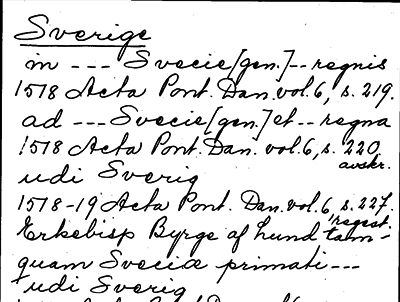 Sverige
in --- Svecie [gen.] -- regnis
1518 Acta Pont. Dan. vol. 6, s. 219.
ad --- Svecie [gen.] et -- regna
1518 Acta Pont. Dan. vol. 6, s. 220
avskr.
udi Sverig
1518-19 Acta Pont. Dan. vol. 6, s. 227.
regest.
Erkebisp Byrge af Lund tam-
quam Sveciæ primati ---
udi Sverig